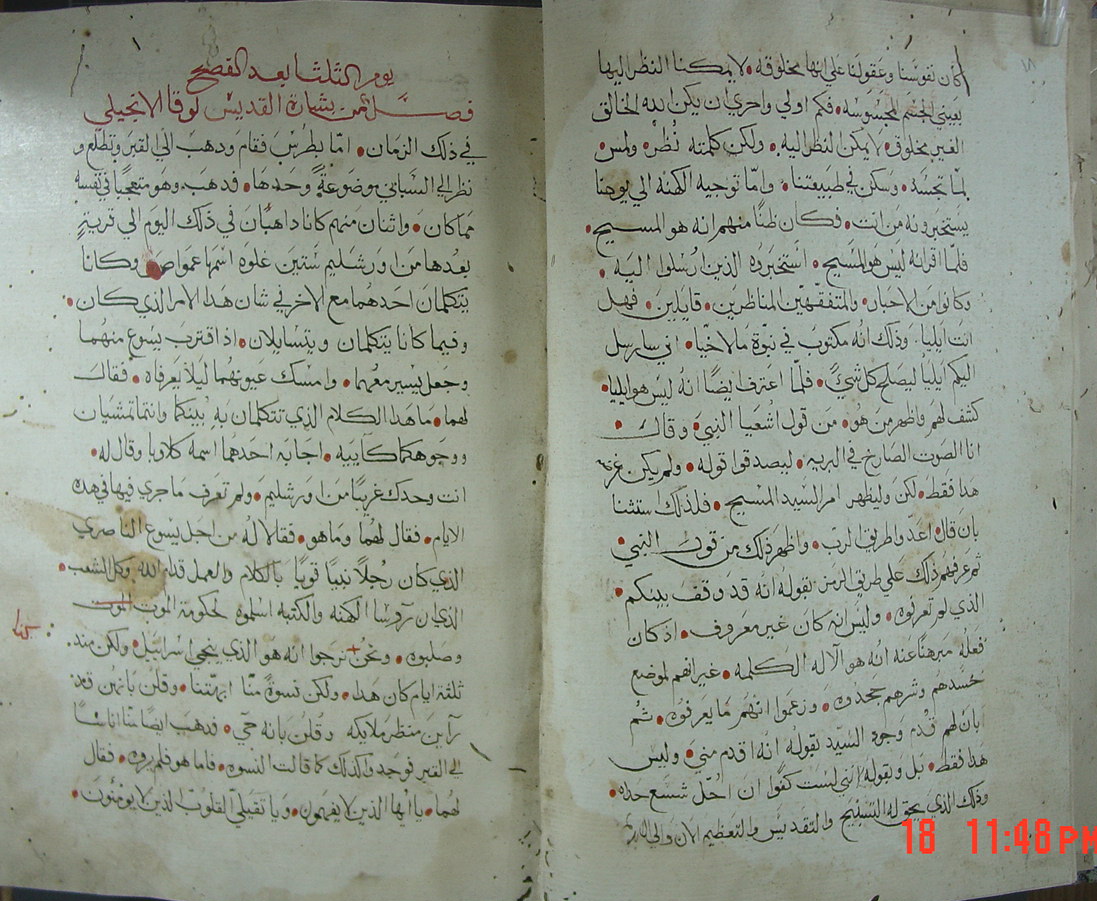 كأن نفوسنا وعقولنا على انها مخلوقه لا يمكننا النظر اليها
بعيني الجسم المحسوسه فكم اولي واحري ان يكن الله الخالق
الغير مخلوق لا يمكن النظر اليه ولكن كلمته نُظر ولمس
لمّا تجسّد وسكن في طبيعتنا وامّا توجيه الكهنه الي يوحنا
يستخبرونه مَن انت فكان ظنًا منهم انه هو المسيح
فلمّا اقرانه ليس هو المسيح استخبروه الذين ارسلوا اليه
وكانوا من الاحبار والمتفقهين المناظرين قايلين فهل
انت ايليا وذلك انه مكتوب في نبوة ملاخيا اني سارسل
اليكم ايليا ليصلح كل شيء فلمّا اعترف ايضًا انه ليس هو ايليا
كشف لهم واظهر من هو من قول اشعيا النبي وقال
انا الصوت الصارخ في البريه ليصدقوا قوله ولم يكن غرضه
هدا فقط لكن وليظهر امر السيد المسيح فلدلك استثنا
بان قال اعدوا طريق الرب واظهر ذلك من قول النبي
ثم عرفهم ذلك علي طريق الرمز لقوله انه قد وقف بينكم
الذي لم تعرفوه وليس انه كان غير معروف اذ كان
فعله مبرهنًا عنه انه هو الآله الكلمه غير انهم لموضع
حسدهم وشرهم جحدوه وزعموا انهم ما يعرفوه ثم
ابان لهم قدم وجود السيد لقوله انه اقدم مني وليس
هدا فقط بل ولقوله انني لست كفوًا ان احُلّ شسع حداه
وذلك الذي يحق له التسبيح والتقديس والتعظيم الان والي
18 11:48 PM
يوم الثلثا بعد الفصح
فصل من بشارة القديس لوقا الانجيلي
في ذلك الزمان امّا بطرس فقام ودهب الي القبر وتطلع و
نظر الي الثياب موضوعةً وحدها فدهب وهو متعجبًا في نفسه
ممّا كان واثنان منهم كانا داهبان في ذلك اليوم الي قريةٍ
بعدها من اورشليم ستين غلوه اسمها عمواص وكانا
يتكلمان احدهما مع الاخر في شان هدا الامر الذي كان
وفيما كانا يتكلمان ويتسايلان اذ اقترب يسوع منهما
وجعل يسير معهما وامسك عيونهما ليلا يعرفاه فقال
لهما ما هدا الكلام الذي تتكلمان به بينكما وانتما تمشيان
ووجوهكما كاييبه اجابه احدهما اسمه كلاوبا وقال له
انت وحدك غريبًا من اورشليم ولم تعرف ما جري فيها في هده
الايام فقال لهما وما هو فقالا له من اجل يسوع الناصري
الذي كان رجلاً نبيًا قويًا بالكلام والعمل قدام الله وكل الشعب
الذي ان رؤسا الكهنه والكتبه اسلموه لحكومة الموت
كنا
وصلبوه ونحن نرجوا انه هو الذي ينجي اسراييل ولكن مند
ثلثة ايام كان هدا ولكن نسوةً منّا ابهتننا وقلن بانهن قد
رآين منظر ملايكه وقلن بانه حي فدهب ايضًا منّا اناسًا
الي القبر فوجدوا كدلك كما قالت النسوه فاما هو فلم يروه فقال
لهما يا ايها الذين لا يفهمون ويا ثقيلي القلوب الذين لا يومنون